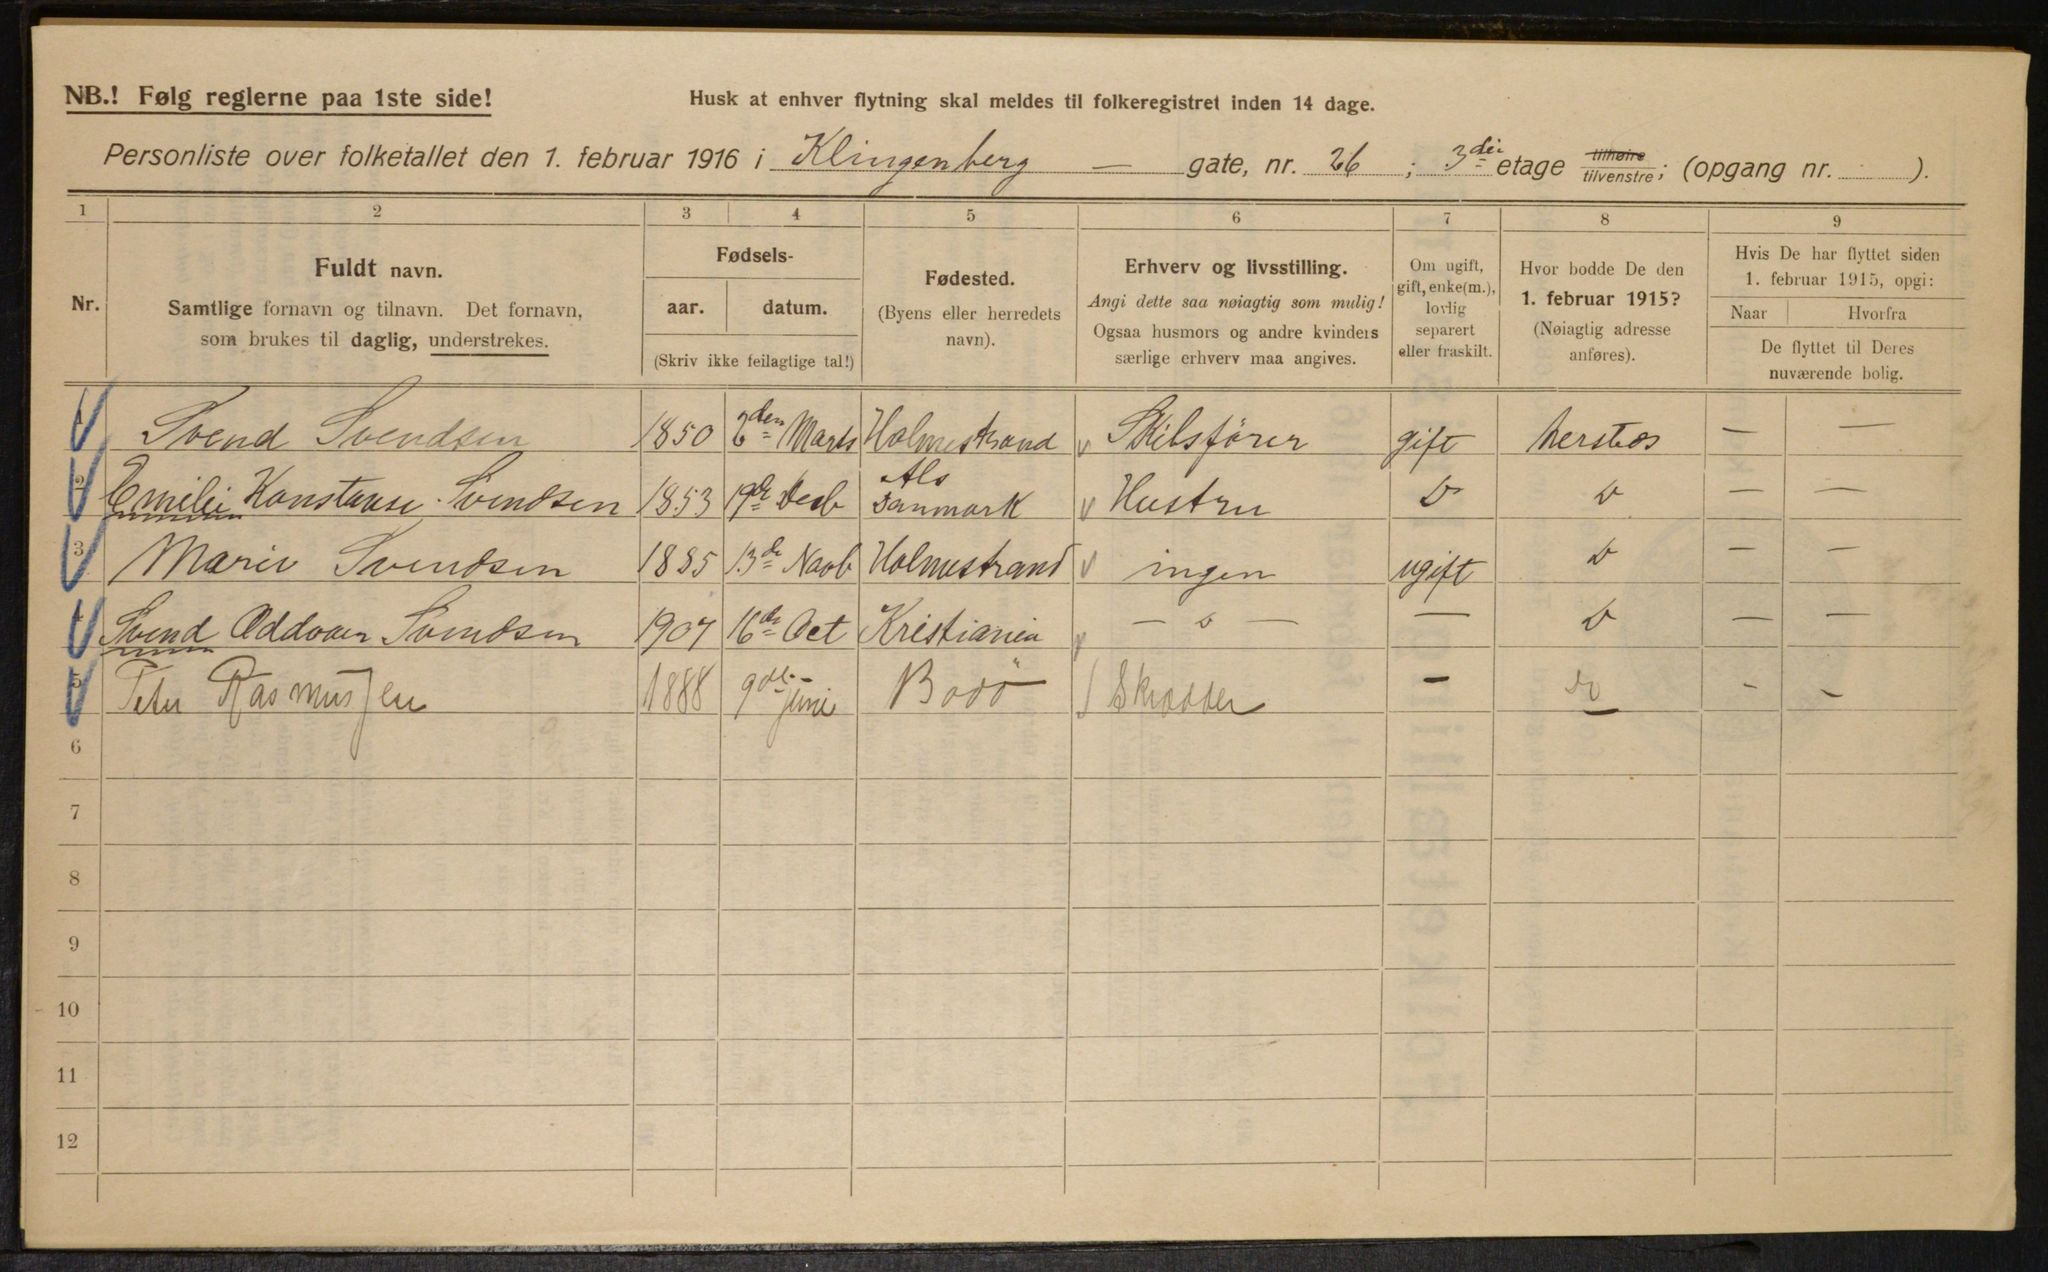 NB.! Følg reglerne paa 1ste side!
Husk at enhver flytning skal meldes til folkeregistret inden 14 dage.
Personliste over folketallet den 1. februar 1916 i Klingenberg — gate, nr. 26 ; 3die etage tilhøire tilvenstre; (opgang nr. ).
1 2 3 4 5 6 7 8 9
Nr.
Fuldt navn.
Samtlige fornavn og tilnavn. Det fornavn,
som brukes til daglig, understrekes.
Fødsels-
aar. datum.
(Skriv ikke feilagtige tal!)
Fødested.
(Byens eller herredets
navn).
Erhverv og livsstilling.
Angi dette saa nøiagtig som mulig!
Ogsaa husmors og andre kvinders
særlige erhverv maa angives.
Om ugift,
gift, enke(m.),
lovlig
separert
eller fraskilt.
Hvor bodde De den
1. februar 1915?
(Nøiagtig adresse
anføres).
Hvis De har flyttet siden
1. februar 1915, opgi:
Naar Hvorfra
De flyttet til Deres
nuværende bolig.
1 Svend Svendsen 1850 2den Marts Holmestrand Skibsfører gift hersteds — —
2 Emilie Konstanse Svendsen 1853 19de Desb Als Danmark Hustru D D — —
3 Marie Svendsen 1885 13de Novb Holmestrand ingen ugift D — —
4 Svend Oddvar Svendsen 1907 16de Oct Kristiania — D — — D — —
5 Peter Rasmussen 1888 9de juni Bodö Skrædder - do - -
6
7
8
9
10
11
12